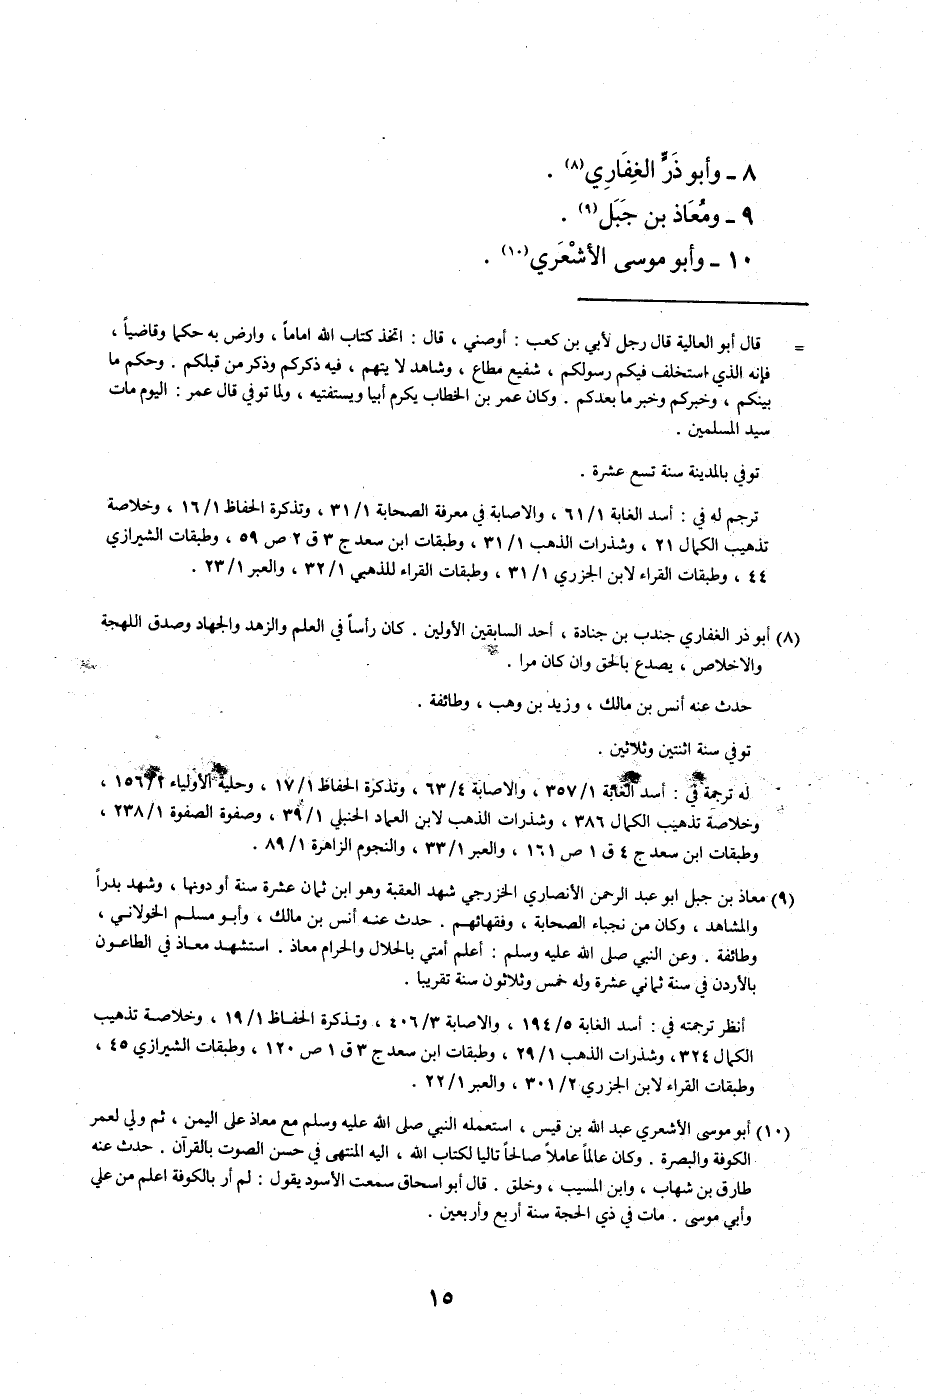 ٨ ـ وأبو ذَرٍّ الغِفَارِي(٨) .
٩ ـ ومُعَاذ بن جَبَل(٩) .
١٠ ـ وأبو موسى الأشْعَري(١٠) .
= قال أبو العالية قال رجل لأبي بن كعب : أوصني ، قال : اتخذ كتاب الله اماماً ، وارض به حكما وقاضياً ،
فإنه الذي استخلف فيكم رسولكم ، شفيع مطاع ، وشاهد لا يتهم ، فيه ذكركم وذكر من قبلكم . وحكم ما
بينكم ، وخبركم وخبر ما بعدكم . وكان عمر بن الخطاب يكرم أبيا ويستفتيه ، ولما توفي قال عمر : اليوم مات
سيد المسلمين .
توفي بالمدينة سنة تسع عشرة .
ترجم له في : أسد الغابة ١/ ٦١ ، والاصابة في معرفة الصحابة ١/ ٣١ ، وتذكرة الحفاظ ١/ ١٦ ، وخلاصة
تذهيب الكمال ٢١ ، وشذرات الذهب ١/ ٣١ ، وطبقات ابن سعد ج ٣ ق ٢ ص ٥٩ ، وطبقات الشيرازي
٤٤ ، وطبقات القراء لابن الجزري ١/ ٣١ ، وطبقات القراء للذهبي ١/ ٣٢ ، والعبر ١/ ٢٣ .
(٨) أبو ذر الغفاري جندب بن جنادة ، أحد السابقين الأولين . كان رأساً في العلم والزهد والجهاد وصدق اللهجة
والاخلاص ، يصدع بالحق وان كان مرا .
حدث عنه أنس بن مالك ، وزيد بن وهب ، وطائفة .
توفي سنة اثنتين وثلاثين .
له ترجمة في : أسد الغابة ١/ ٣٥٧ ، والاصابة ٤/ ٦٣ ، وتذكرة الحفاظ ١/ ١٧ ، وحلية الأولياء ٢/ ١٥٦ ،
وخلاصة تذهيب الكمال ٣٨٦ ، وشذرات الذهب لابن العماد الحنبلي ١/ ٣٩ ، وصفوة الصفوة ١/ ٢٣٨ ،
وطبقات ابن سعد ج ٤ ق ١ ص ١٦١ ، والعبر ١/ ٣٣ ، والنجوم الزاهرة ١/ ٨٩ .
(٩) معاذ بن جبل ابو عبد الرحمن الأنصاري الخزرجي شهد العقبة وهو ابن ثمان عشرة سنة أو دونها ، وشهد بدراً
والمشاهد ، وكان من نجباء الصحابة ، وفقهائهم . حدث عنه أنس بن مالك ، وأبو مسلم الخولاني ،
وطائفة . وعن النبي صلى الله عليه وسلم : أعلم أمتي بالحلال والحرام معاذ . استشهد معاذ في الطاعون
بالأردن في سنة ثماني عشرة وله خمس وثلاثون سنة تقريبا .
أنظر ترجمته في : أسد الغابة ٥/ ١٩٤ ، والاصابة ٣/ ٤٠٦ ، وتذكرة الحفاظ ١/ ١٩ ، وخلاصة تذهيب
الكمال ٣٢٤ ، وشذرات الذهب ١/ ٢٩ ، وطبقات ابن سعد ج ٣ ق ١ ص ١٢٠ ، وطبقات الشيرازي ٤٥ ،
وطبقات القراء لابن الجزري ٢/ ٣٠١ ، والعبر ١/ ٢٢ .
(١٠) أبو موسى الأشعري عبد الله بن قيس ، استعمله النبي صلى الله عليه وسلم مع معاذ على اليمن ، ثم ولي لعمر
الكوفة والبصرة . وكان عالماً عاملاً صالحاً تاليا لكتاب الله ، اليه المنتهى في حسن الصوت بالقرآن . حدث عنه
طارق بن شهاب ، وابن المسيب ، وخلق . قال أبو اسحاق سمعت الأسود يقول : لم أر بالكوفة اعلم من علي
وأبي موسى . مات في ذي الحجة سنة أربع وأربعين .
١٥